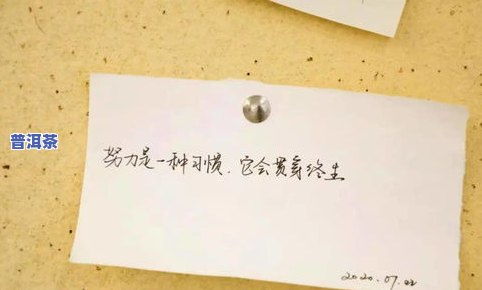 普洱茶
努力是一种习惯，它会贯穿终生
2020.07.22